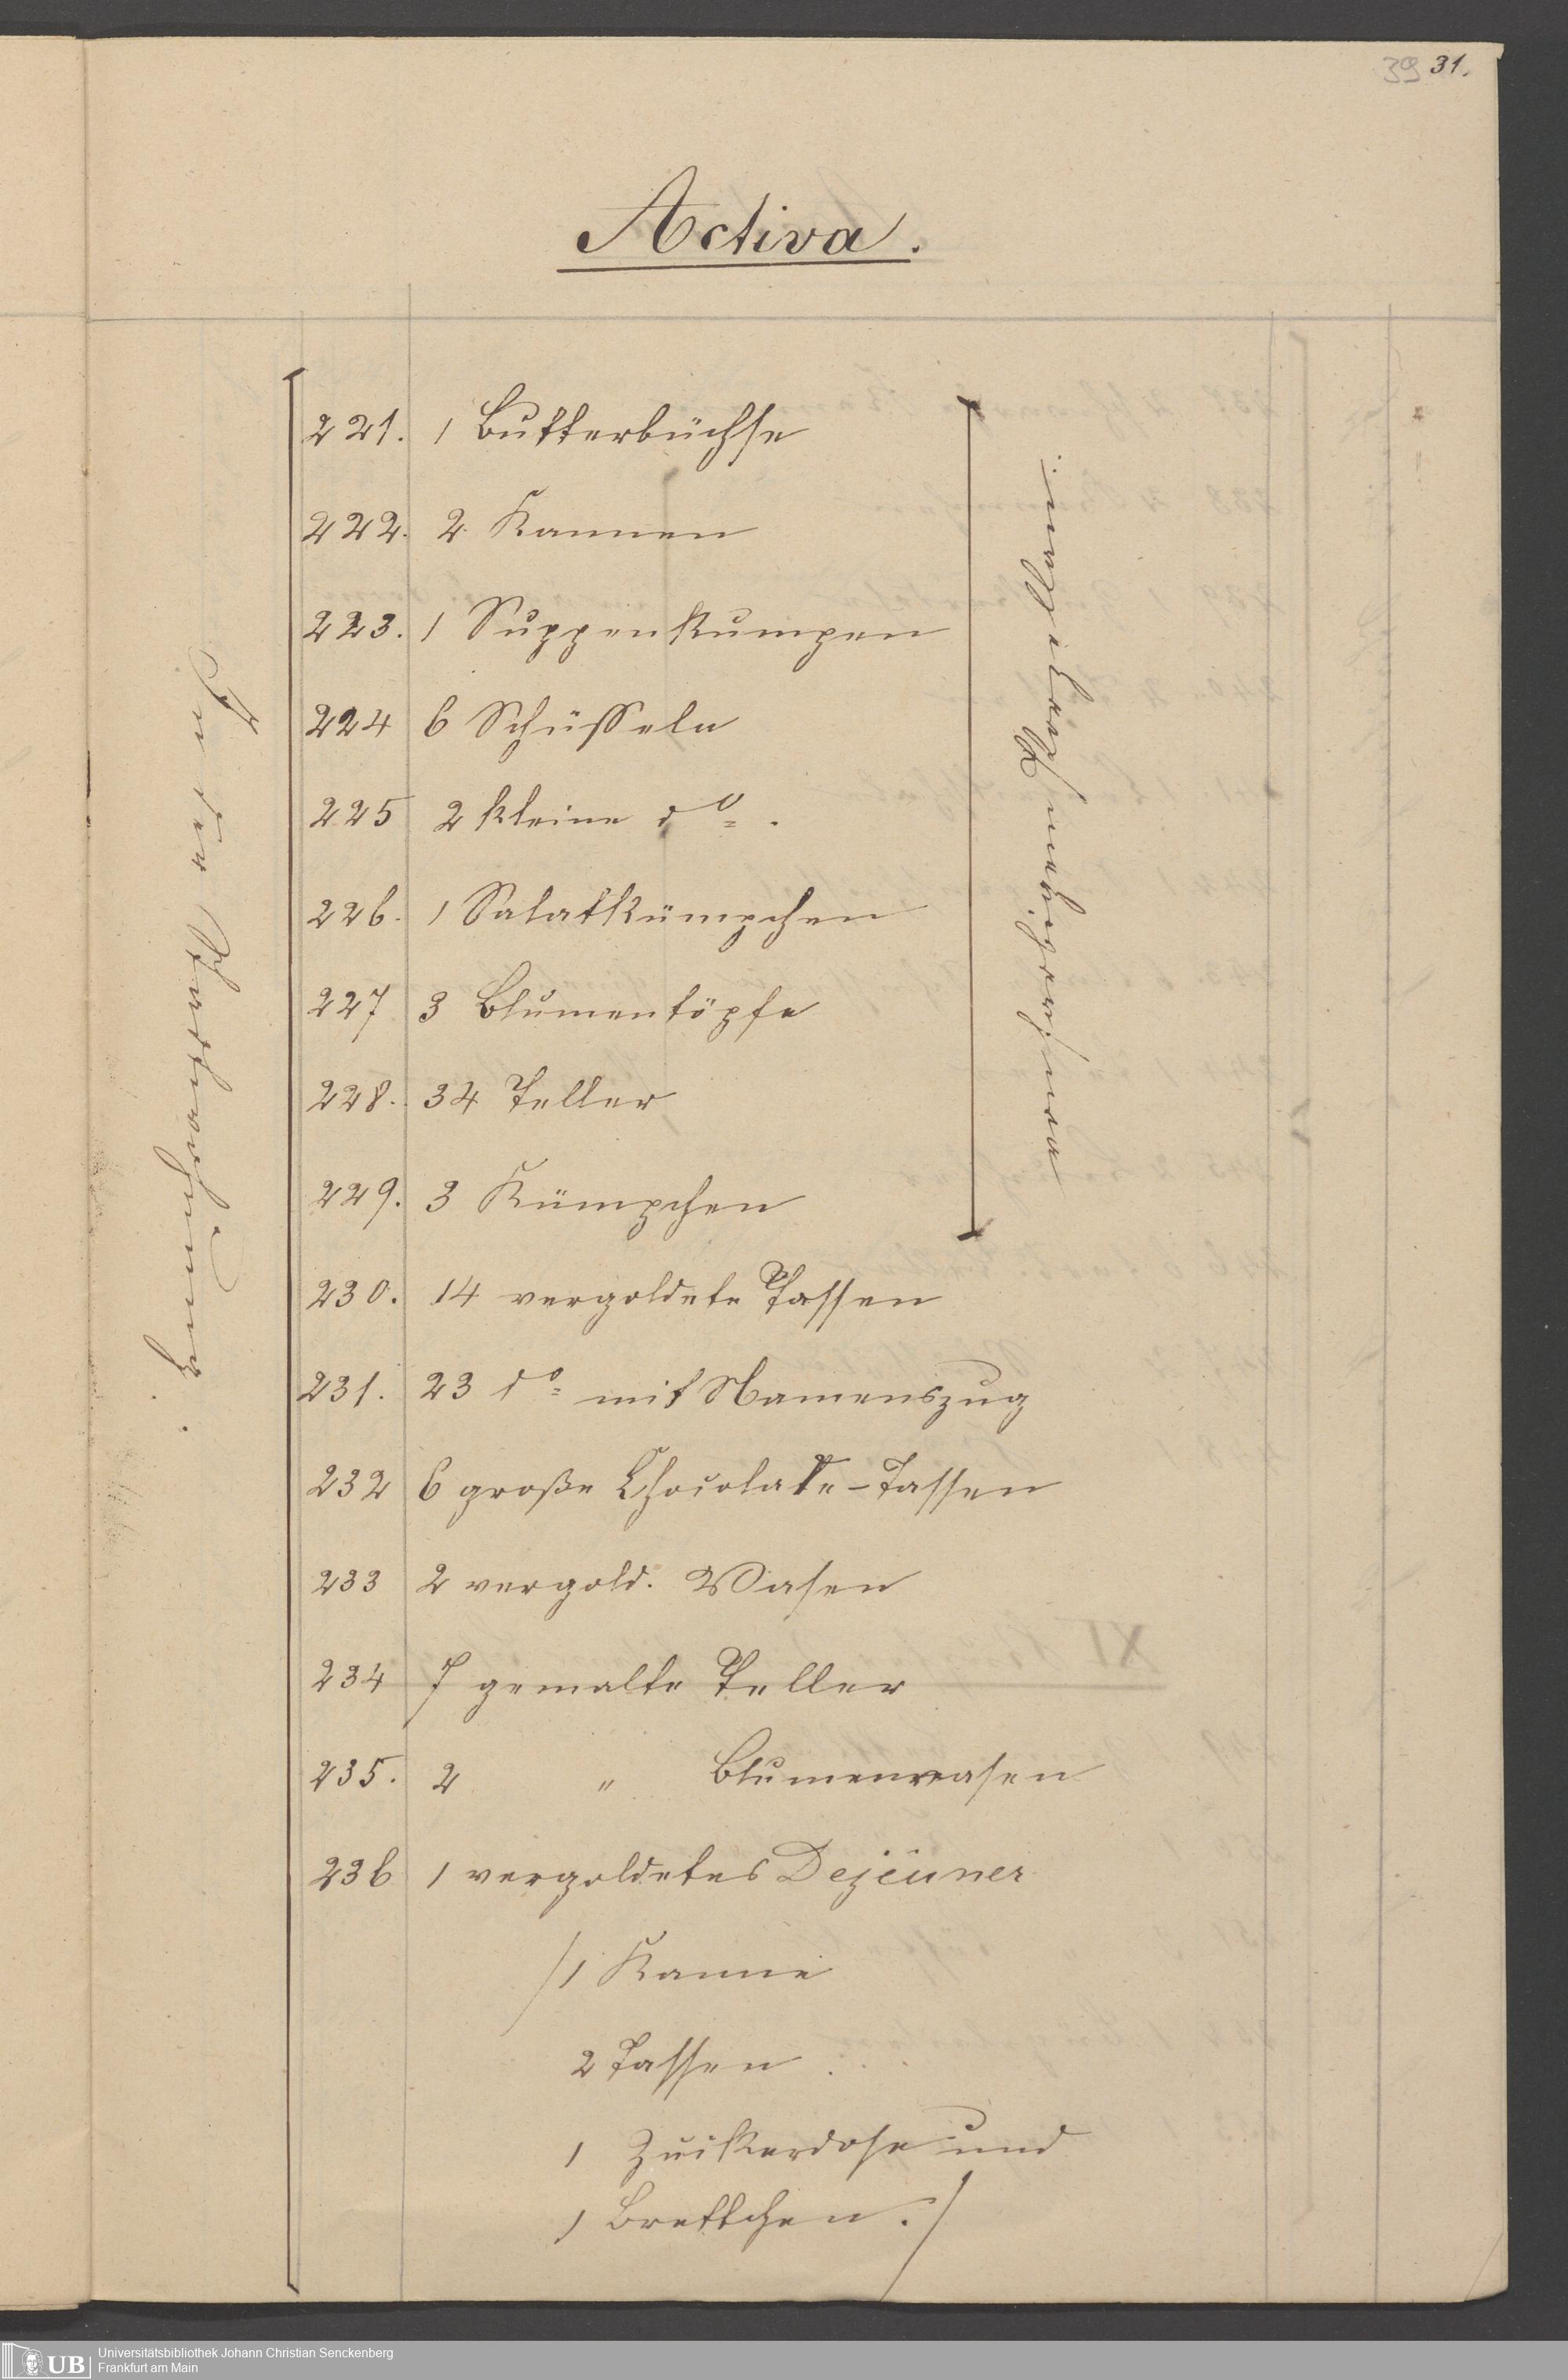 39 31.
Activa.
In der
221. 1 Butterbüchse
222. 2 Kannen
223. 1 Suppenkumpen
224 6 Schüsseln
225 2 kleine do.
226. 1 Salatkümpchen
227 3 Blumentöpfe
228. 34 Teller
229. 3 Kümpchen
230. 14 vergoldete Tassen
231. 23 do mit Namenszug
232 6 große Chocolate-Tassen
233 2 vergold. Vasen
234 7 gemalte Teller
235. 2 " Blumenvasen
236 1 vergoldetes Dejeuner
/1 Kanne
2 Tassen
1 Zuckerdose und
1 Brettchen./
UB Universitätsbibliothek Johann Christian Senckenberg
Frankfurt am Main